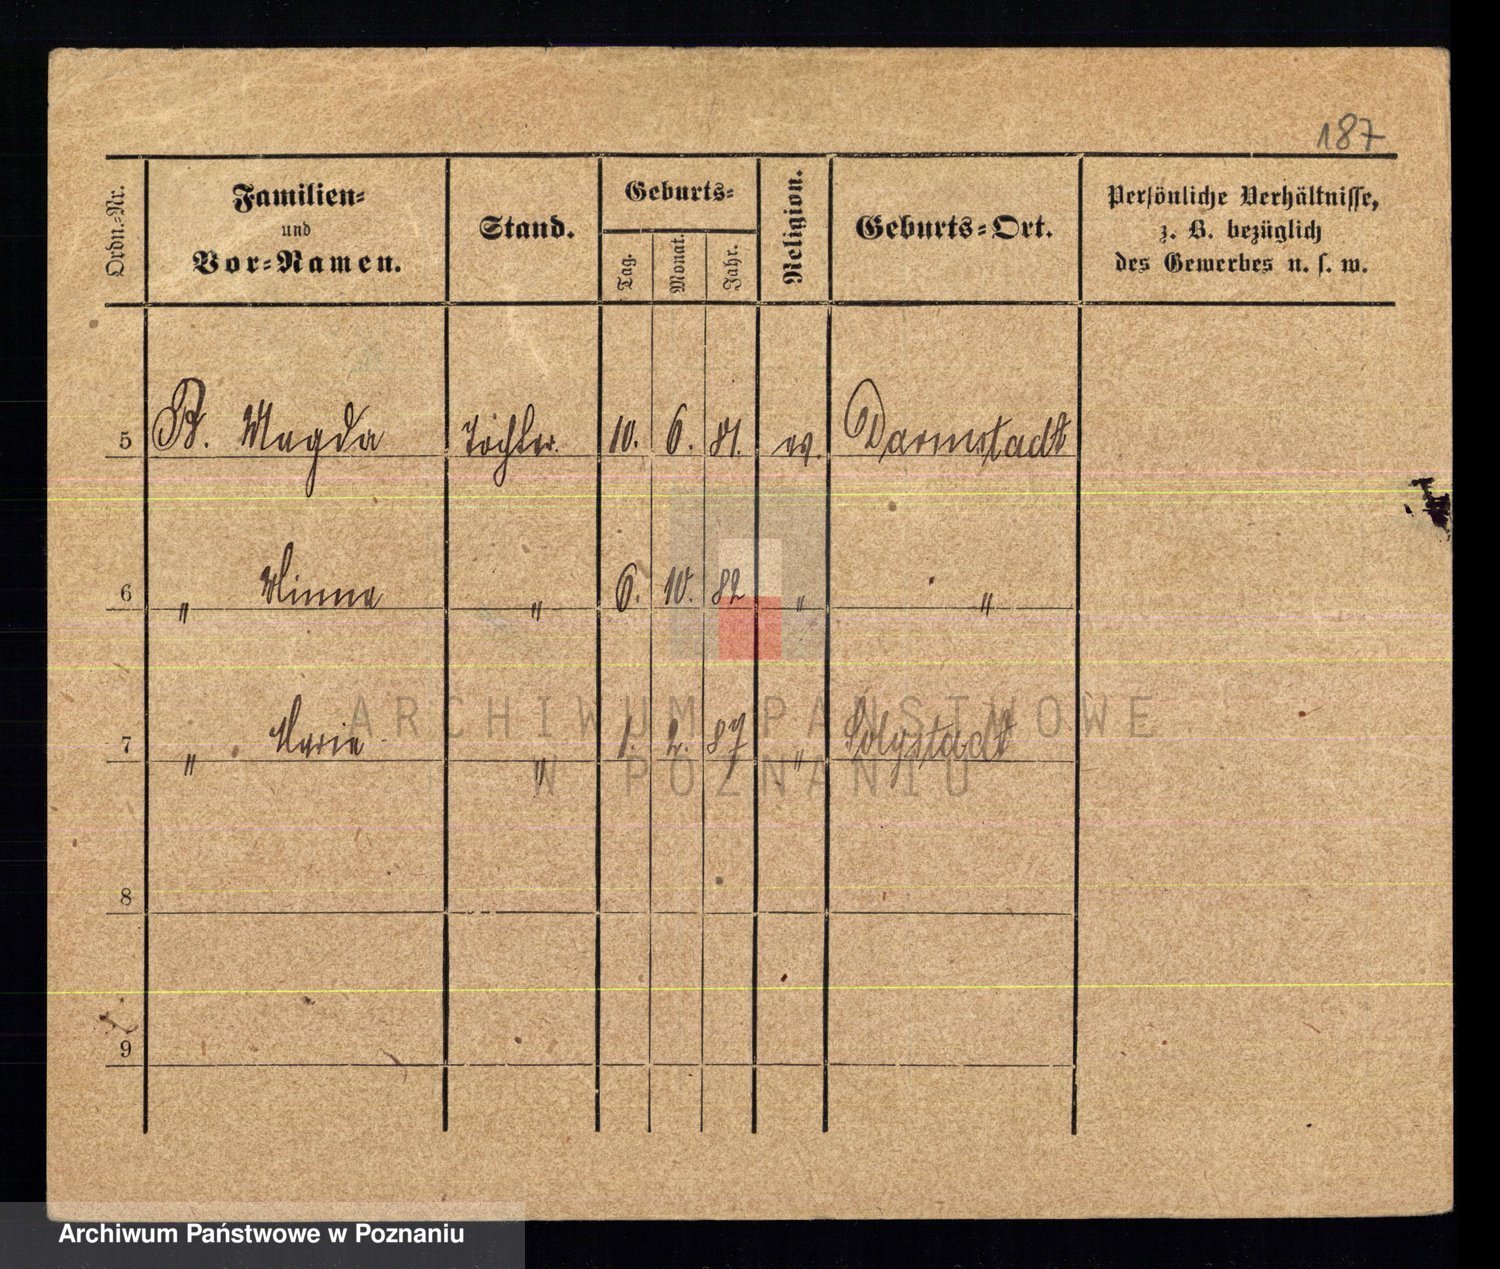 187
Ordn.-Nr.
Familien-
und
Vor-Namen.
Stand.
Geburts-
Tag. Monat. Jahr.
Religion.
Geburts-Ort.
Persönliche Verhältnisse,
z. B. bezüglich
des Gewerbes u. s. w.
5 B. Magda Tochter. 10. 6. 81. ev. Darmstadt
6 " Minna " 6. 10. 82 " "
7 " Marie " 1. 2. 87 "
8
9
ARCHIWUM PAŃSTWOWE
W POZNANIU
Archiwum Państwowe w Poznaniu